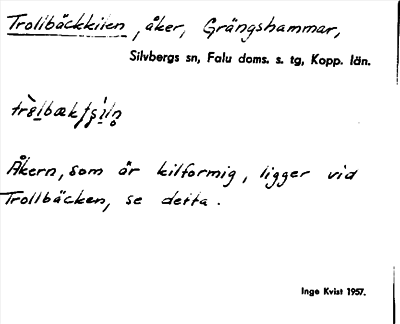 Trollbäckkilen, åker, Grängshammar,
Silvbergs sn, Falu doms. s. tg, Kopp. län.
Åkern, som är kilformig, ligger vid
Trollbäcken, se detta.
Inge Kvist 1957.